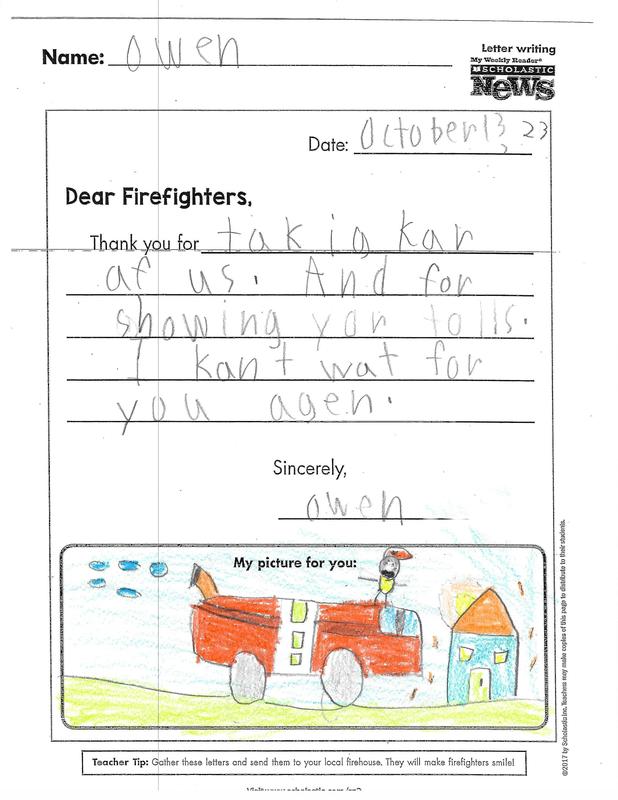 Name: owen
Letter writing
My Weekly Reader®
SCHOLASTIC
NEWS
Date: October 13, 23
Dear Firefighters,
Thank you for takig kar
af us. And for
showing yor tolls.
I kant wat for
you agen.
Sincerely,
owen
My picture for you:
Teacher Tip: Gather these letters and send them to your local firehouse. They will make firefighters smile!
©2017 by Scholastic Inc. Teachers may make copies of this page to distribute to their students.